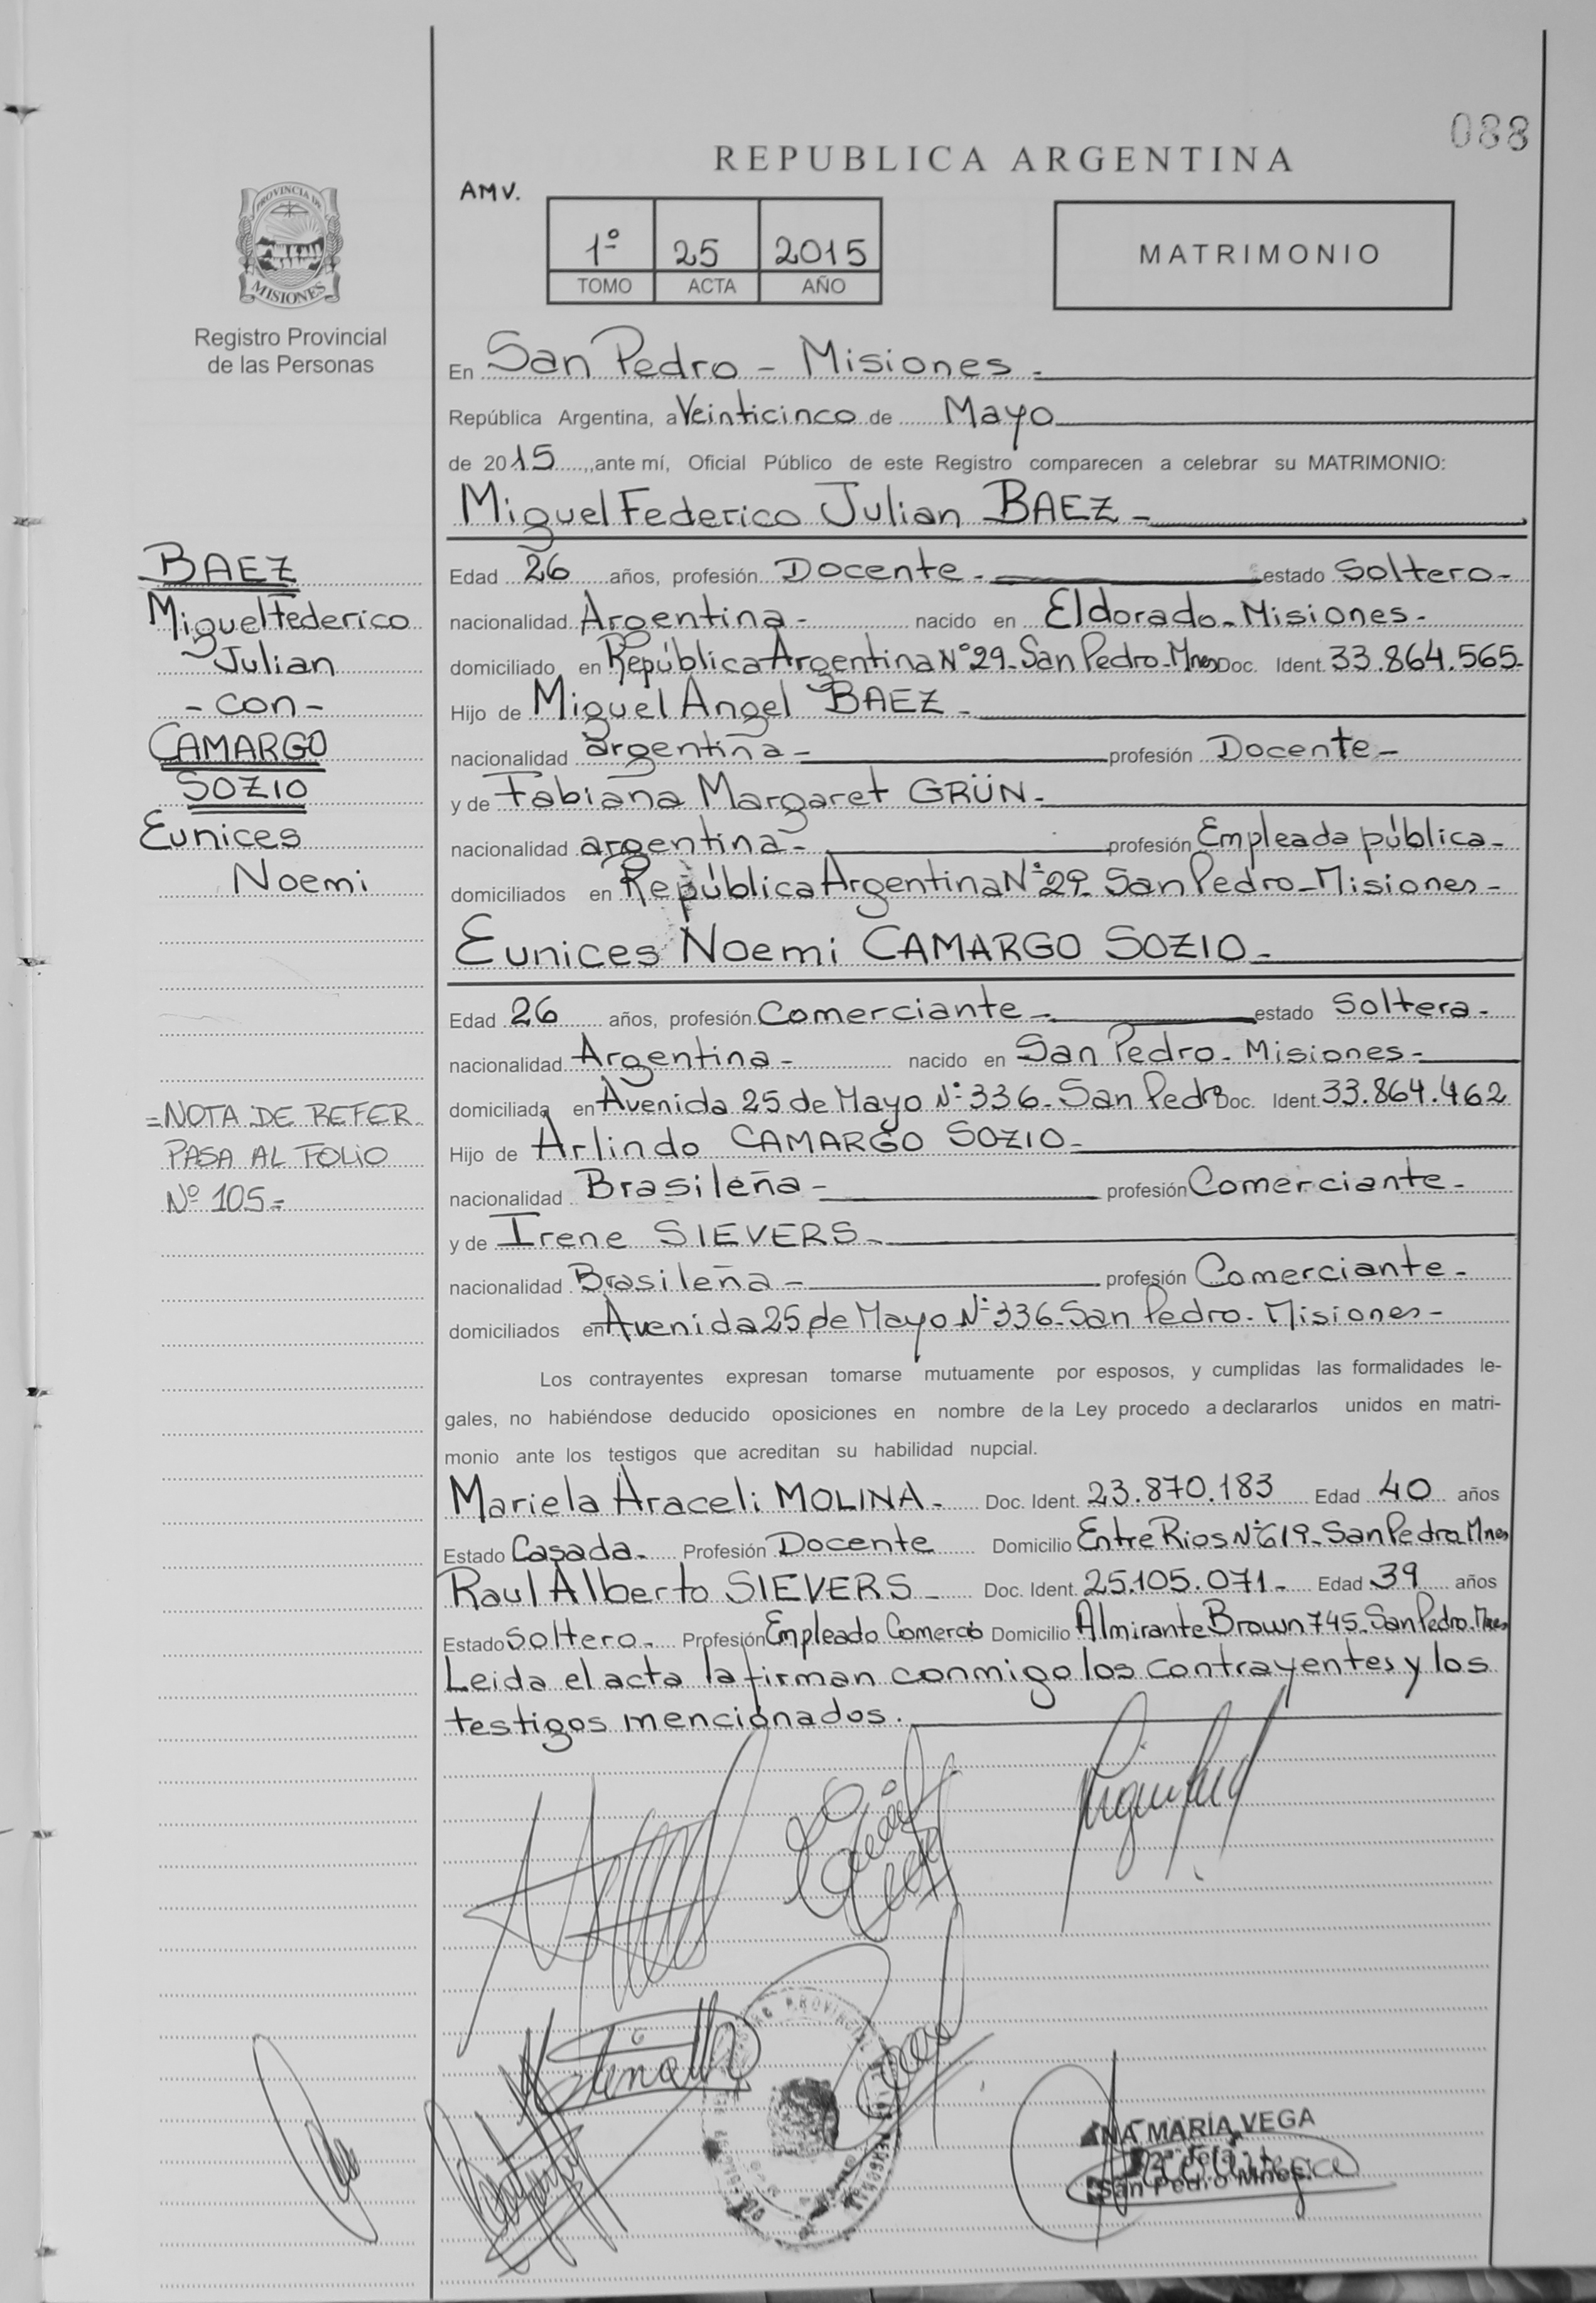 088
REPUBLICA ARGENTINA
AMV.
1º 25 2015
TOMO ACTA AÑO
MATRIMONIO
PROVINCIA DE
MISIONES
Registro Provincial
de las Personas
En San Pedro - Misiones -
República Argentina, a Veinticinco de Mayo
de 2015, ante mí, Oficial Público de este Registro comparecen a celebrar su MATRIMONIO:
Miguel Federico Julian BAEZ -
BAEZ
Miguel Federico
Julian
- con -
CAMARGO
SOZIO
Eunices
Noemi
Edad 26 años, profesión Docente - estado Soltero -
nacionalidad Argentina - nacido en Eldorado - Misiones -
domiciliado en República Argentina Nº 29 - San Pedro - Mnes Doc. Ident. 33.864.565 -
Hijo de Miguel Angel BAEZ -
nacionalidad argentina - profesión Docente -
y de Fabiana Margaret GRÜN -
nacionalidad argentina - profesión Empleada pública -
domiciliados en República Argentina Nº 29 - San Pedro - Misiones -
Eunices Noemi CAMARGO SOZIO -
Edad 26 años, profesión Comerciante - estado Soltera -
nacionalidad Argentina - nacido en San Pedro - Misiones -
domiciliada en Avenida 25 de Mayo Nº 336 - San Pedro Doc. Ident. 33.864.462
Hijo de Arlindo CAMARGO SOZIO -
nacionalidad Brasileña - profesión Comerciante -
y de Irene SIEVERS -
nacionalidad Brasileña - profesión Comerciante -
domiciliados en Avenida 25 de Mayo Nº 336 - San Pedro - Misiones -
= NOTA DE REFER.
PASA AL FOLIO
Nº 105 =
Los contrayentes expresan tomarse mutuamente por esposos, y cumplidas las formalidades le-
gales, no habiéndose deducido oposiciones en nombre de la Ley procedo a declararlos unidos en matri-
monio ante los testigos que acreditan su habilidad nupcial.
Mariela Araceli MOLINA - Doc. Ident. 23.870.183 Edad 40 años
Estado Casada - Profesión Docente Domicilio Entre Rios Nº 619 - San Pedro Mnes
Raul Alberto SIEVERS - Doc. Ident. 25.105.071 - Edad 39 años
Estado Soltero - Profesión Empleado Comercio Domicilio Almirante Brown 745 - San Pedro. Mnes
Leida el acta la firman conmigo los contrayentes y los
testigos mencionados.
ANA MARÍA VEGA
San Pedro Mnes.